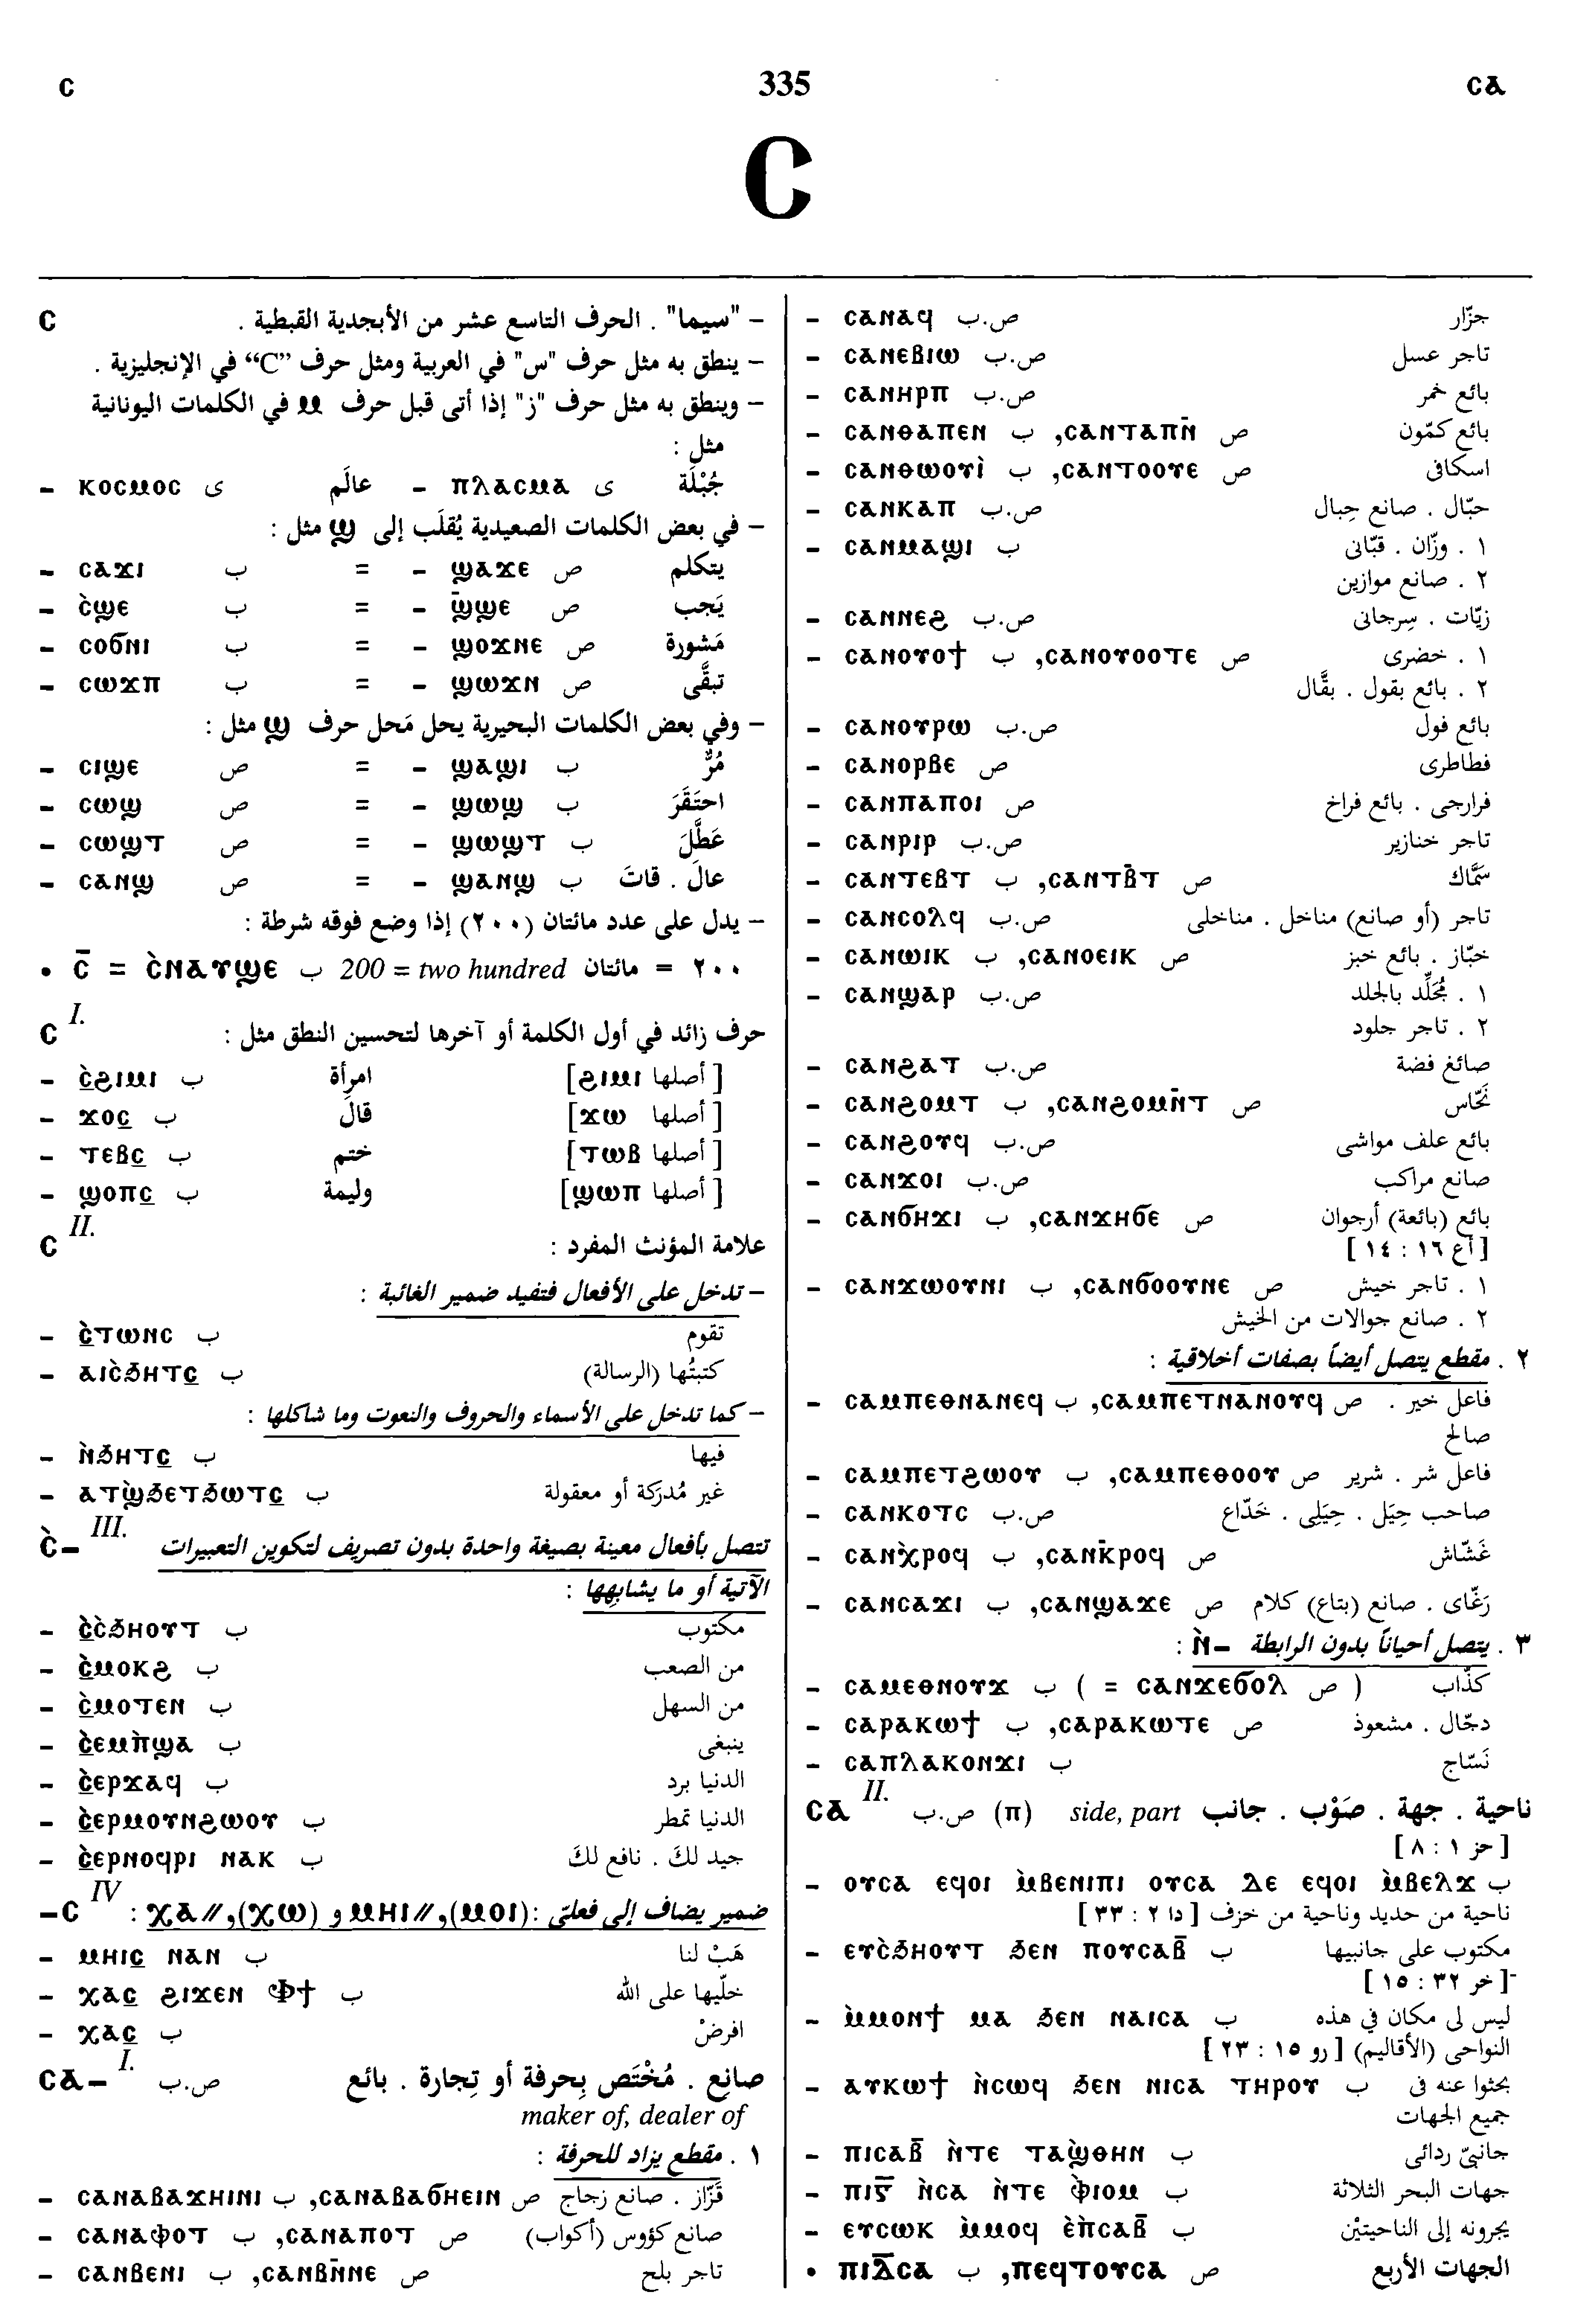 ⲥ 335 ⲥⲁ
Ⲥ
ⲥ – "سيما" . الحرف التاسع عشر من الأبجدية القبطية .
– ينطق به مثل حرف "س" في العربية ومثل حرف “C” في الإنجليزية .
– وينطق به مثل حرف "ز" إذا أتى قبل حرف ⲙ في الكلمات اليونانية
مثل :
– ⲕⲟⲥⲙⲟⲥ ى عالَم – ⲡⲗⲁⲥⲙⲁ ى جُبْلَة
– في بعض الكلمات الصعيدية يُقلَب إلى ϣ مثل :
– ⲥⲁϫⲓ ب = – ϣⲁϫⲉ ص يتكلم
– ⲥ̀ϣⲉ ب = – ϣ̄ϣⲉ ص يَجب
– ⲥⲟϭⲛⲓ ب = – ϣⲟϫⲛⲉ ص مَشورة
– ⲥⲱϫⲡ ب = – ϣⲱϫⲛ ص تبقَّى
– وفي بعض الكلمات البحيرية يحل مَحل حرف ϣ مثل :
– ⲥⲓϣⲉ ص = – ϣⲁϣⲓ ب مُرٌّ
– ⲥⲱϣ ص = – ϣⲱϣ ب احتَقَرَ
– ⲥⲱϣⲧ ص = – ϣⲱϣⲧ ب عَطَّلَ
– ⲥⲁⲛϣ ص = – ϣⲁⲛϣ ب عالَ . قاتَ
– يدل على عدد مائتان (٢٠٠) إذا وضع فوقه شرطة :
• ⲥ̄ = ⲥ̀ⲛⲁⲩϣⲉ ب 200 = two hundred مائتان = ٢٠٠
ⲥ I. حرف زائد في أول الكلمة أو آخرها لتحسين النطق مثل :
– ⲥ̀ϩⲓⲙⲓ ب امرأة [أصلها ϩⲓⲙⲓ]
– ϫⲟⲥ ب قالَ [أصلها ϫⲱ]
– ⲧⲉⲃⲥ ب ختم [أصلها ⲧⲱⲃ]
– ϣⲟⲡⲥ ب وليمة [أصلها ϣⲱⲡ]
ⲥ II. علامة المؤنث المفرد :
– تدخل على الأفعال فتفيد ضمير الغائبة :
– ⲥ̀ⲧⲱⲛⲥ ب تقوم
– ⲁⲓⲥ̀ϧⲏⲧⲥ ب كتبتُها (الرسالة)
– كما تدخل على الأسماء والحروف والنعوت وما شاكلها :
– ⲛ̀ϧⲏⲧⲥ ب فيها
– ⲁⲧϣ̀ϧⲉⲧϧⲱⲧⲥ ب غير مُدرَكة أو معقولة
ⲥ̀– III. تتصل بأفعال معينة بصيغة واحدة بدون تصريف لتكوين التعبيرات
الآتية أو ما يشابهها :
– ⲥ̀ⲥ̀ϧⲏⲟⲩⲧ ب مكتوب
– ⲥ̀ⲙⲟⲕϩ ب من الصعب
– ⲥ̀ⲙⲟⲧⲉⲛ ب من السهل
– ⲥ̀ⲉⲙⲡ̀ϣⲁ ب ينبغى
– ⲥ̀ⲉⲣϫⲁϥ ب الدنيا برد
– ⲥ̀ⲉⲣⲙⲟⲩⲛϩⲱⲟⲩ ب الدنيا تمطر
– ⲥ̀ⲉⲣⲛⲟϥⲣⲓ ⲛⲁⲕ ب جيد لكَ . نافع لكَ
–ⲥ IV ضمير يضاف إلى فعلتى :(ⲙⲟⲓ), //ⲙⲏⲓ و (ⲭⲱ), //ⲭⲁ :
– ⲙⲏⲓⲥ ⲛⲁⲛ ب هَبْ لنا
– ⲭⲁⲥ ϩⲓϫⲉⲛ Ⲫϯ ب خلّيها على الله
– ⲭⲁⲥ ب افرضْ
ⲥⲁ– I. ص.ب صانِع . مُخْتَص بِحرفة أو تِجارة . بائع
maker of, dealer of
١ . مقطع يزاد للحرفة :
– ⲥⲁⲛⲁⲃⲁϫⲏⲓⲛⲓ ب ,ⲥⲁⲛⲁⲃⲁϭⲏⲉⲓⲛ ص قَزّاز . صانع زجاج
– ⲥⲁⲛⲁⲫⲟⲧ ب ,ⲥⲁⲛⲁⲡⲟⲧ ص صانع كؤوس (أكواب)
– ⲥⲁⲛⲃⲉⲛⲓ ب ,ⲥⲁⲛⲃⲛ̄ⲛⲉ ص تاجر بلح
– ⲥⲁⲛⲁϥ ص.ب جزّار
– ⲥⲁⲛⲉⲃⲓⲱ ص.ب تاجر عسل
– ⲥⲁⲛⲏⲣⲡ ص.ب بائع خمر
– ⲥⲁⲛⲑⲁⲡⲉⲛ ب ,ⲥⲁⲛⲧⲁⲡⲛ̄ ص بائع كمّون
– ⲥⲁⲛⲑⲱⲟⲩⲓ̀ ب ,ⲥⲁⲛⲧⲟⲟⲩⲉ ص اسكافى
– ⲥⲁⲛⲕⲁⲡ ص.ب حبّال . صانع حِبال
– ⲥⲁⲛⲙⲁϣⲓ ب ١ . وزّان . قبّانى
٢ . صانع موازين
– ⲥⲁⲛⲛⲉϩ ص.ب زيّات . سِرجانى
– ⲥⲁⲛⲟⲩⲟϯ ب ,ⲥⲁⲛⲟⲩⲟⲟⲧⲉ ص ١ . خضرى
٢ . بائع بقول . بقَّال
– ⲥⲁⲛⲟⲩⲣⲱ ص.ب بائع فول
– ⲥⲁⲛⲟⲣⲃⲉ ص فطاطرى
– ⲥⲁⲛⲡⲁⲡⲟⲓ ص فرارجى . بائع فراخ
– ⲥⲁⲛⲣⲓⲣ ص.ب تاجر خنازير
– ⲥⲁⲛⲧⲉⲃⲧ ب ,ⲥⲁⲛⲧⲃ̄ⲧ ص سَمَّاك
– ⲥⲁⲛⲥⲟⲗϥ ص.ب تاجر (أو صانع) مناخل . مناخلى
– ⲥⲁⲛⲱⲓⲕ ب ,ⲥⲁⲛⲟⲉⲓⲕ ص خبّاز . بائع خبز
– ⲥⲁⲛϣⲁⲣ ص.ب ١ . مُجَلِّد بالجلد
٢ . تاجر جلود
– ⲥⲁⲛϩⲁⲧ ص.ب صائغ فضة
– ⲥⲁⲛϩⲟⲙⲧ ب ,ⲥⲁⲛϩⲟⲙⲛ̄ⲧ ص نَحّاس
– ⲥⲁⲛϩⲟⲩϥ ص.ب بائع علف مواشى
– ⲥⲁⲛϫⲟⲓ ص.ب صانع مراكب
– ⲥⲁⲛϭⲏϫⲓ ب ,ⲥⲁⲛϫⲏϭⲉ ص بائع (بائعة) أرجوان
[أع ١٦ : ١٤]
– ⲥⲁⲛϫⲱⲟⲩⲛⲓ ب ,ⲥⲁⲛϭⲟⲟⲩⲛⲉ ص ١ . تاجر خيش
٢ . صانع جوالات من الخيش
٢ . مقطع يتصل أيضاً بصفات أخلاقية :
– ⲥⲁⲙⲡⲉⲑⲛⲁⲛⲉϥ ب ,ⲥⲁⲙⲡⲉⲧⲛⲁⲛⲟⲩϥ ص فاعل خير .
صالح
– ⲥⲁⲙⲡⲉⲧϩⲱⲟⲩ ب ,ⲥⲁⲙⲡⲉⲑⲟⲟⲩ ص فاعل شر . شرير
– ⲥⲁⲛⲕⲟⲧⲥ ص.ب صاحب حِيَل . حِيَلِى . خَدّاع
– ⲥⲁⲛⲭ̀ⲣⲟϥ ب ,ⲥⲁⲛⲕ̄ⲣⲟϥ ص غَشّاش
– ⲥⲁⲛⲥⲁϫⲓ ب ,ⲥⲁⲛϣⲁϫⲉ ص رَغّاى . صانع (بتاع) كلام
٣ . يتصل أحياناً بدون الرابطة –ⲛ̀ :
– ⲥⲁⲙⲉⲑⲛⲟⲩϫ ب ( = ⲥⲁⲛϫⲉϭⲟⲗ ص ) كذّاب
– ⲥⲁⲣⲁⲕⲱϯ ب ,ⲥⲁⲣⲁⲕⲱⲧⲉ ص دجّال . مشعوذ
– ⲥⲁⲡⲗⲁⲕⲟⲛϫⲓ ب نَسّاج
ⲥⲁ II. ص.ب (ⲡ) side, part ناحية . جهة . صَوْب . جانب
[حز ١ : ٨]
– ⲟⲩⲥⲁ ⲉϥⲟⲓ ⲙ̀ⲃⲉⲛⲓⲡⲓ ⲟⲩⲥⲁ ⲇⲉ ⲉϥⲟⲓ ⲙ̀ⲃⲉⲗϫ ب
ناحية من حديد وناحية من خزف [دا ٢ : ٣٣]
– ⲉⲩⲥ̀ϧⲏⲟⲩⲧ ϧⲉⲛ ⲡⲟⲩⲥⲁⲃ̄ ب مكتوب على جانبيها
[خر ٣٢ : ١٥]
– ⲙ̀ⲙⲟⲛϯ ⲙⲁ ϧⲉⲛ ⲛⲁⲓⲥⲁ ب ليس لى مكان في هذه
النواحى (الأقاليم) [رو ١٥ : ٢٣]
– ⲁⲩⲕⲱϯ ⲛ̀ⲥⲱϥ ϧⲉⲛ ⲛⲓⲥⲁ ⲧⲏⲣⲟⲩ ب بحثوا عنه فى
جميع الجهات
– ⲡⲓⲥⲁⲃ̄ ⲛ̀ⲧⲉ ⲧⲁϣ̀ⲑⲏⲛ ب جانبىّ ردائى
– ⲡⲓⲅ̄ ⲛ̀ⲥⲁ ⲛ̀ⲧⲉ ⲫ̀ⲓⲟⲙ ب جهات البحر الثلاثة
– ⲉⲩⲥⲱⲕ ⲙ̀ⲙⲟϥ ⲉ̀ⲡ̀ⲥⲁⲃ̄ ب يجرونه إلى الناحيتيْن
• ⲡⲓⲇ̄ⲥⲁ ب ,ⲡⲉϥⲧⲟⲩⲥⲁ ص الجهات الأربع